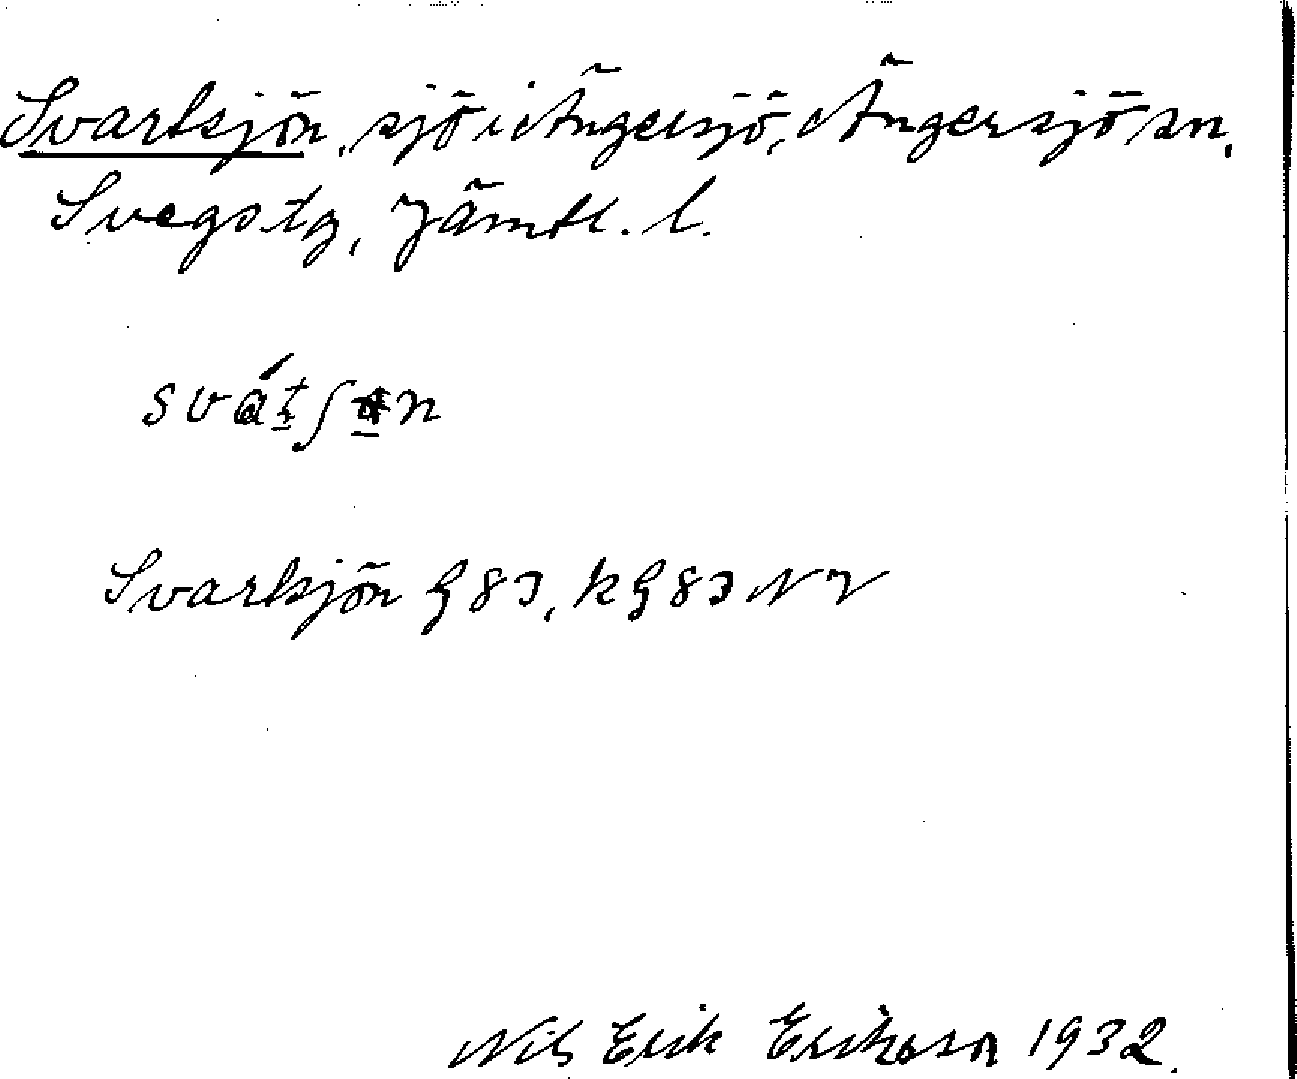 Svartsjön, sjö i Ängersjö, Ängersjö sn,
Svegs tg, Jämtl. l.
Svartsjön G 83, k G 83 NV
Nils Erik Erikson 1932.